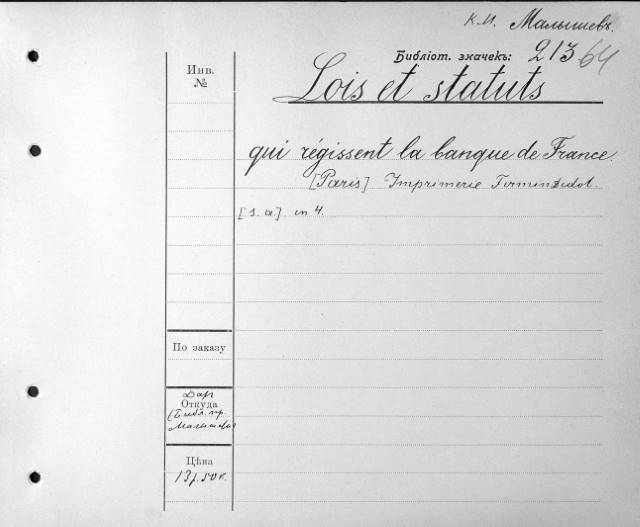 К.И. Малышевъ.
Библіот. значекъ: 21364
Инв.
№
Lois et statuts
qui régissent la banque de France.
[Paris] Imprimerie Firmin Didot.
[s. a.] in 4.
По заказу
Даръ
Откуда
(Библ. пр.
Малышева
Цѣна
13 р. 50 к.